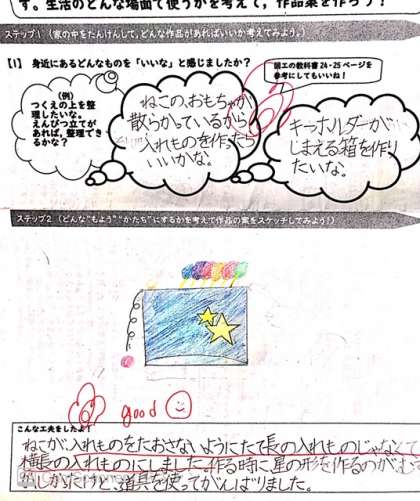 す。生活のどんな場面で使うかを考えて，作品案を作ろう！
ステップ１（家の中をたんけんして，どんな作品があればいいか考えてみよう。）
【1】 身近にあるどんなものを「いいな」と感じましたか？
図工の教科書24・25ページを
参考にしてもいいね！
（例）
つくえの上を整
理したいな。
えんぴつ立てが
あれば，整理でき
るかな？
ねこの、おもちゃが
散らかっているから
入れものを作れたら
いいかな。
キーホルダーが
しまえる箱を作り
たいな。
ステップ２（どんな“もよう”“かたち”にするかを考えて作品の案をスケッチしてみよう！）
good
こんな工夫をしたよ！
ねこが、入れものをたおさないようにたて長の入れものじゃなくて
横長の入れものにしました。作る時に星の形を作るのがむず
かしかたけど、道具を使ってがんばりました。